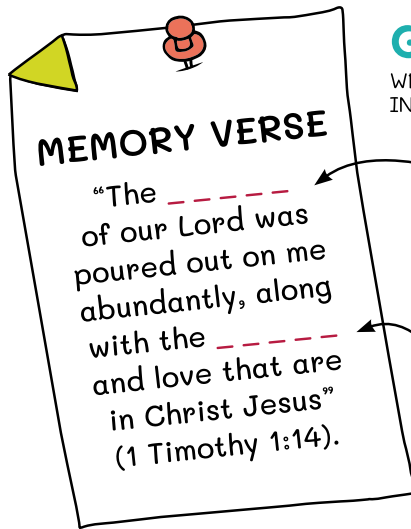 MEMORY VERSE
“The _ _ _ _ _
of our Lord was
poured out on me
abundantly, along
with the _ _ _ _ _
and love that are
in Christ Jesus”
(1 Timothy 1:14).
G
IN